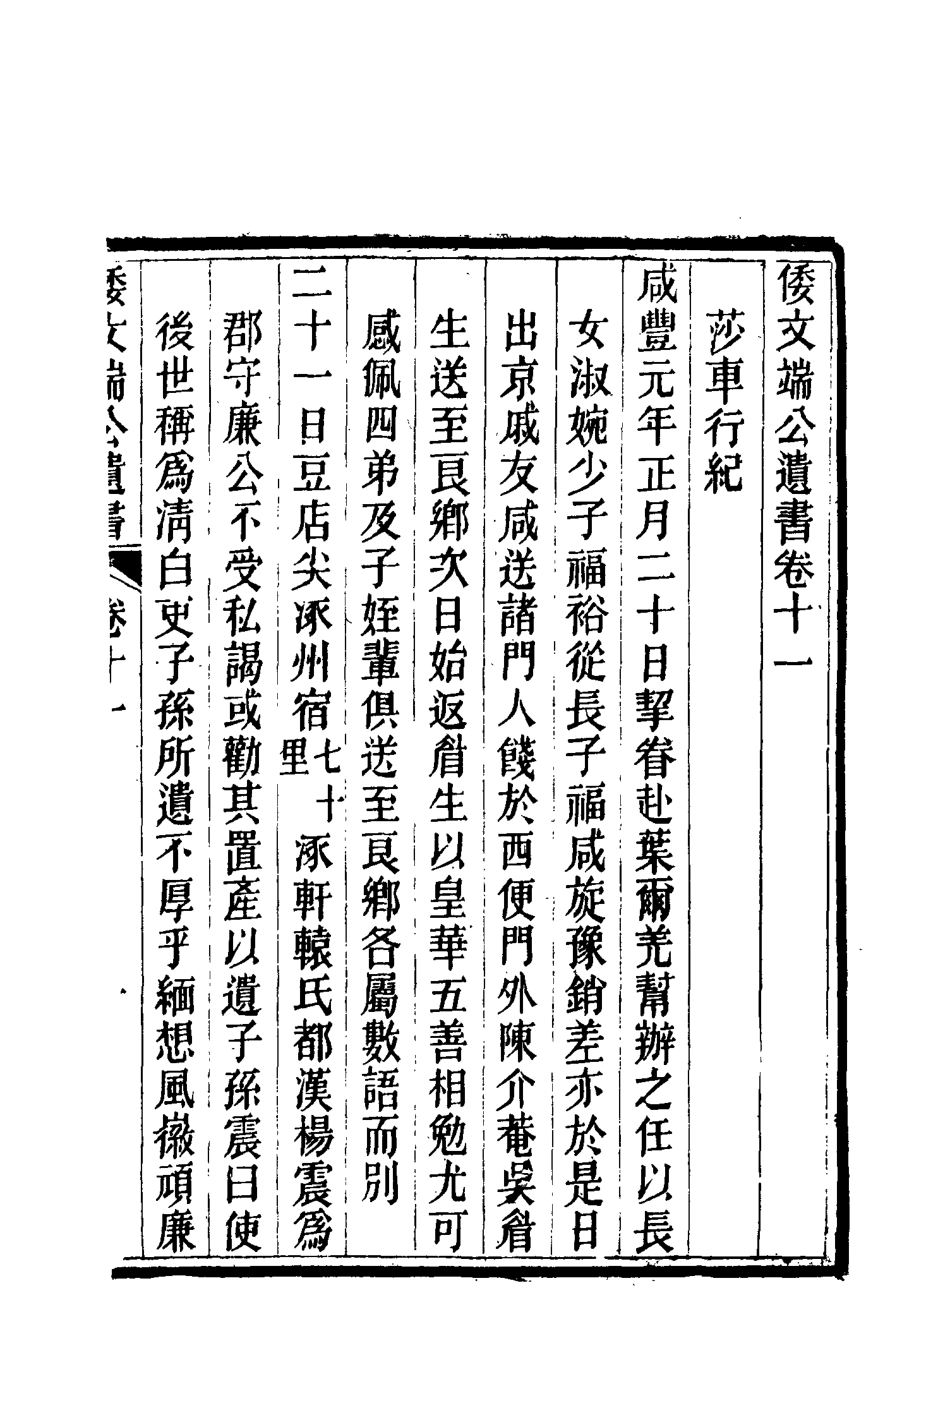 倭文端公遺書卷十一
莎車行紀
咸豐元年正月二十日挈眷赴葉爾羌幫辦之任以長
女淑婉少子福裕從長子福咸旋豫銷差亦於是日
出京戚友咸送諸門人餞於西便門外陳介菴吳眉
生送至良鄉次日始返眉生以皇華五善相勉尤可
感佩四弟及子姪輩俱送至良鄉各屬數語而別
二十一日豆店尖涿州宿七十里涿軒轅氏都漢楊震為
郡守廉公不受私謁或勸其置產以遺子孫震曰使
後世稱為清白吏子孫所遺不厚乎緬想風徽頑廉
倭文端公遺書 卷十一 一